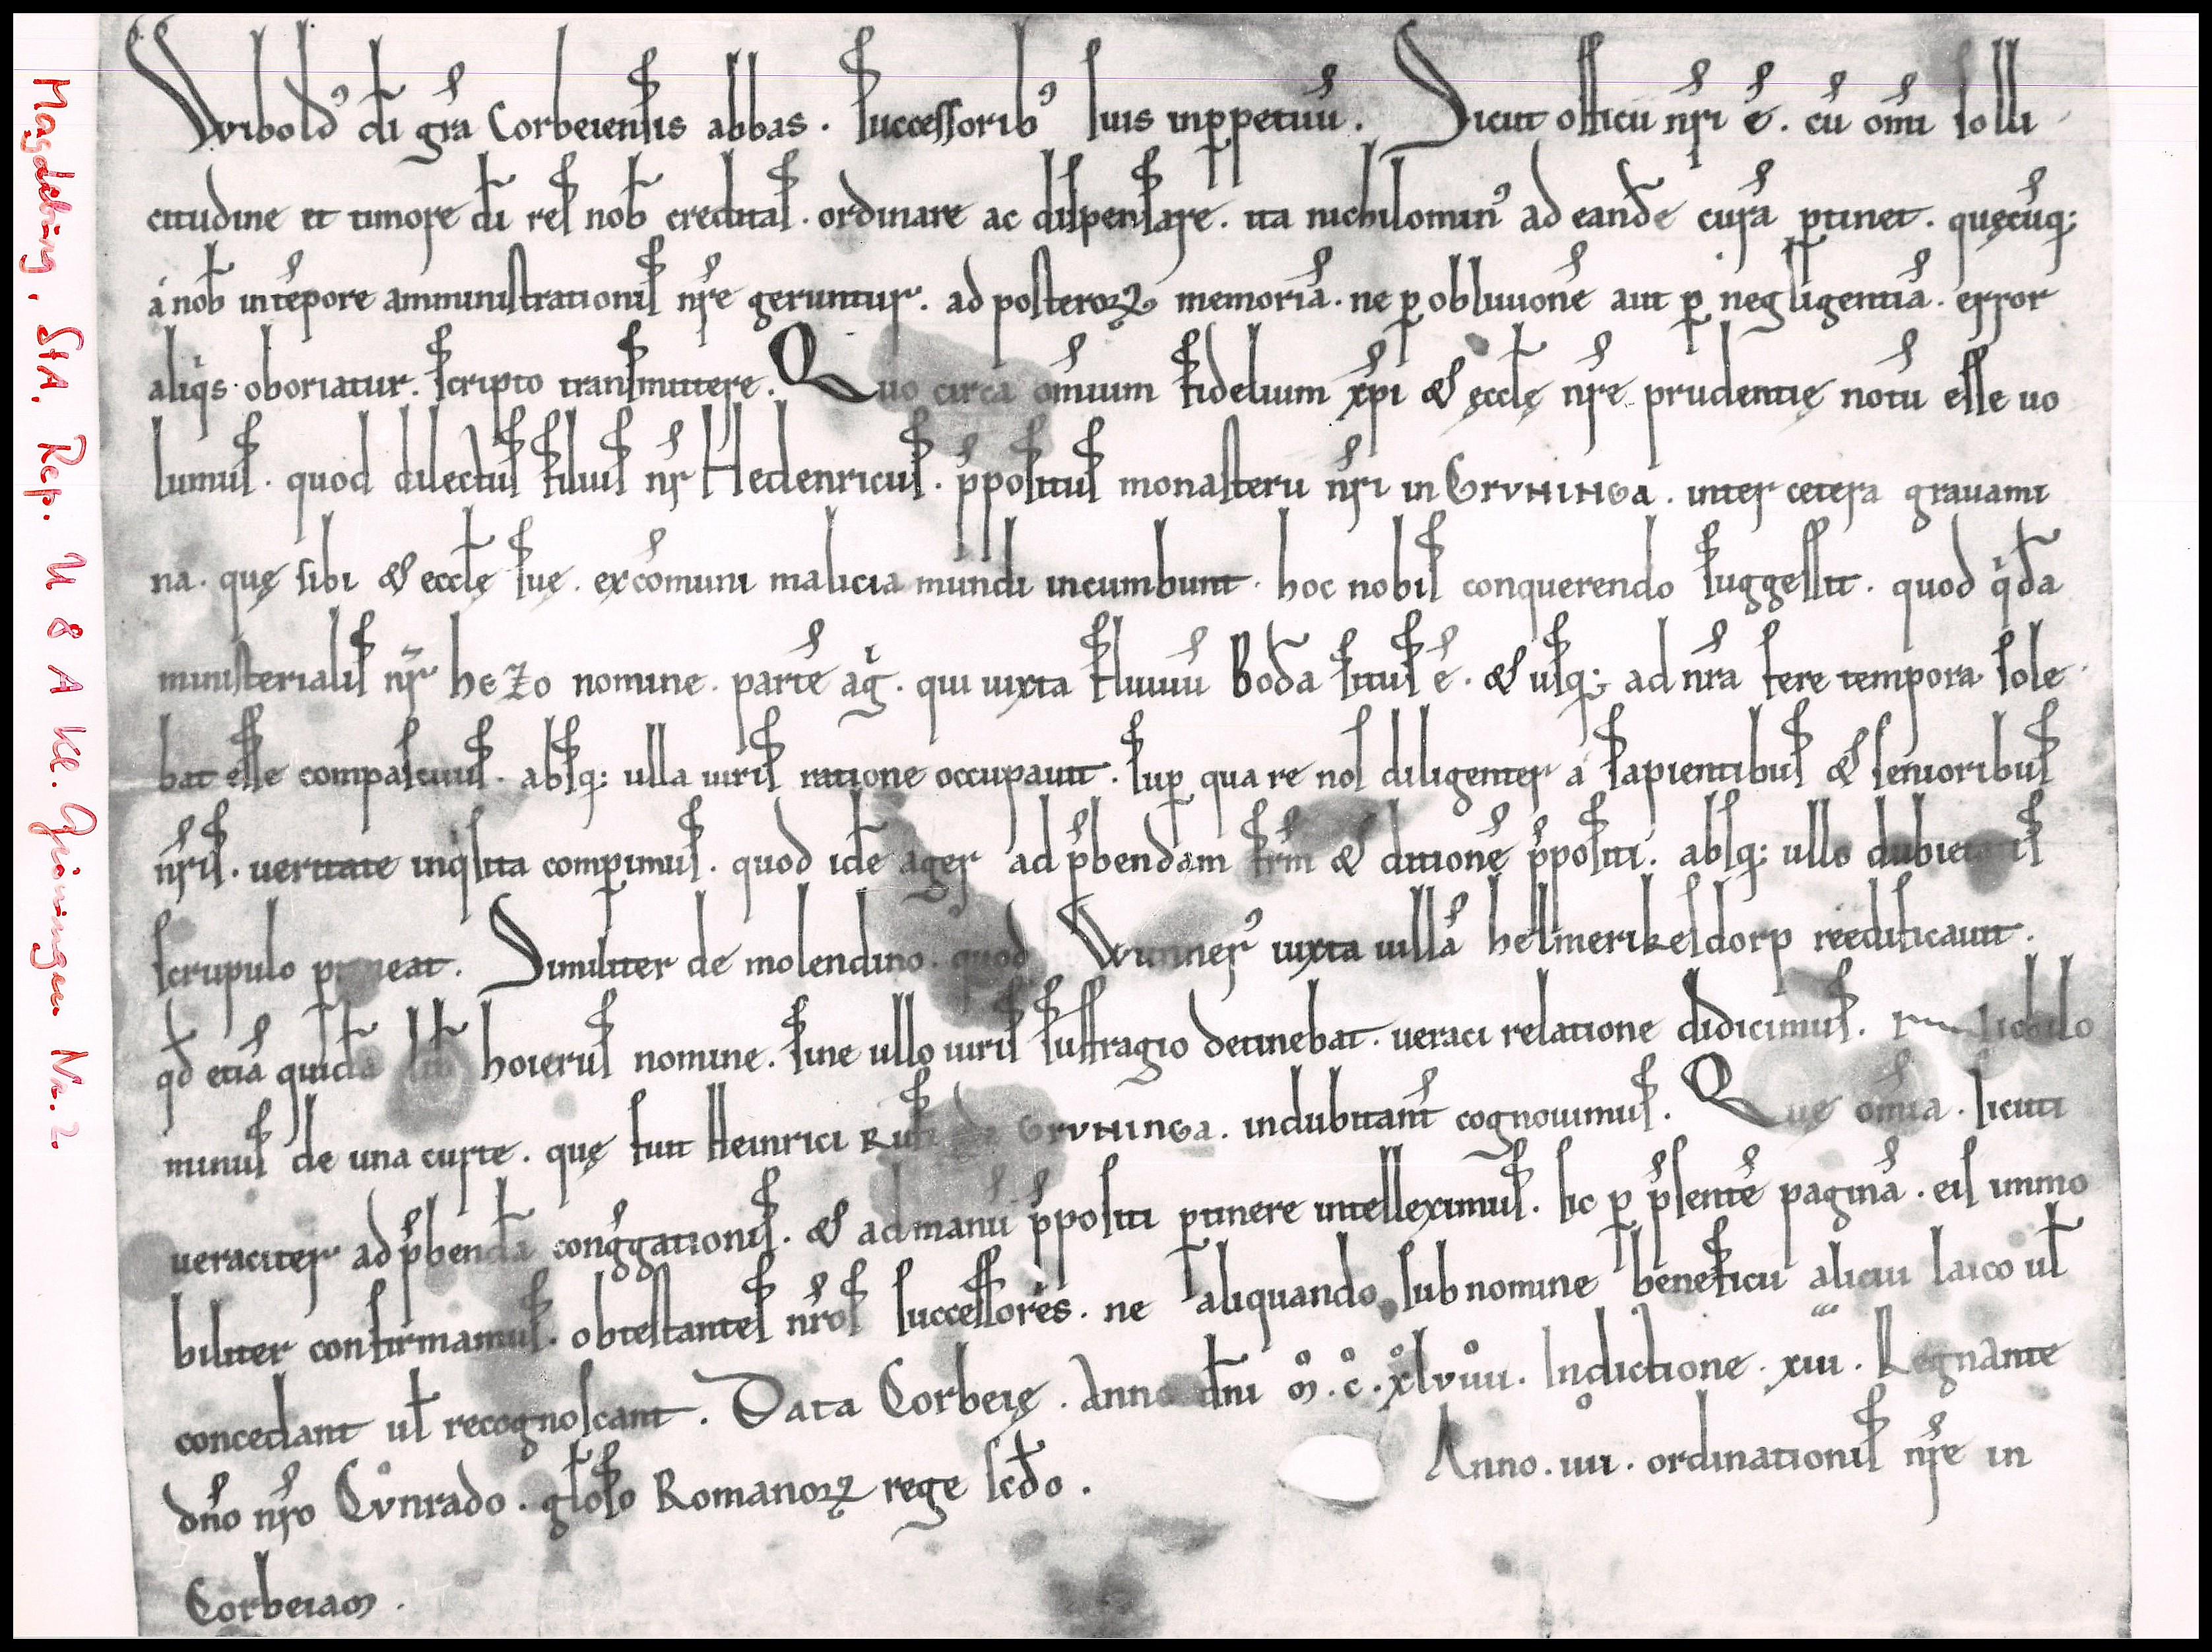 Wibold⁹ di gra Corbeiensis abbas. Successorib⁹ suis inppetuu. Sicut officii nri e. cu omi solli
citudine et timore di res nob creditas. ordinare ac dispensare. ita nichilomin⁹ ad eande cura ptinet. quęcuq;
a nob intepore amministrationis nre geruntur. ad posteroꝝ memoria. ne p obliuione aut p negligentia. error
aliqs oboriatur. scripto transmittere. Quo circa omium fidelium xpi & ęcclę nre prudentię notu esse uo
lumus. quod dilectus filius nr Hedenricus. ppositus monasterii nri in GrvNINGA. inter cetera grauami
na. quę sibi & ecclę suę. excomuni malicia mundi incumbunt. hoc nobis conquerendo suggessit. quod qda
ministerialis nr heZo nomine. parte agi. qui iuxta fluuiu Boda situs e. & usq; ad nra fere tempora sole
bat esse compascuus. absq; ulla iuris ratione occupauit. sup qua re nos diligenter a sapientibus & senioribus
nris. ueritate inqsita compimus. quod ide ager ad pbendam frm & ditione ppositi. absq; ullo dubietatis
scrupulo ptineat. Similiter de molendino. quod Winner⁹ iuxta uilla helmerikesdorp reedificauit.
qd etia quida lit hoierus nomine. sine ullo iuris suffragio detinebat. ueraci relatione didicimus. nichilo
minus de una curte. quę fuit Heinrici Rufi de GrvNINGA. indubitant cognouimus. Quę omia. sicuti
ueraciter ad pbenda conggationis. & ad manu ppositi ptinere intelleximus. sic p psente pagina. eis immo
biliter confirmamus. obtestantes nros successores. ne aliquando sub nomine beneficii alicui laico ul
concedant ul recognoscant. Data Corbeię. Anno dni m. c. xlviiii. Indictione. xiii. Regnante
dno nro Cvnrado. gloso Romanoꝝ rege scdo. Anno. iiii. ordinationis nre in
Corbeiam.
Magdeburg. StA. Rep. U 8 A Kl. Gröningen Nr. 2.